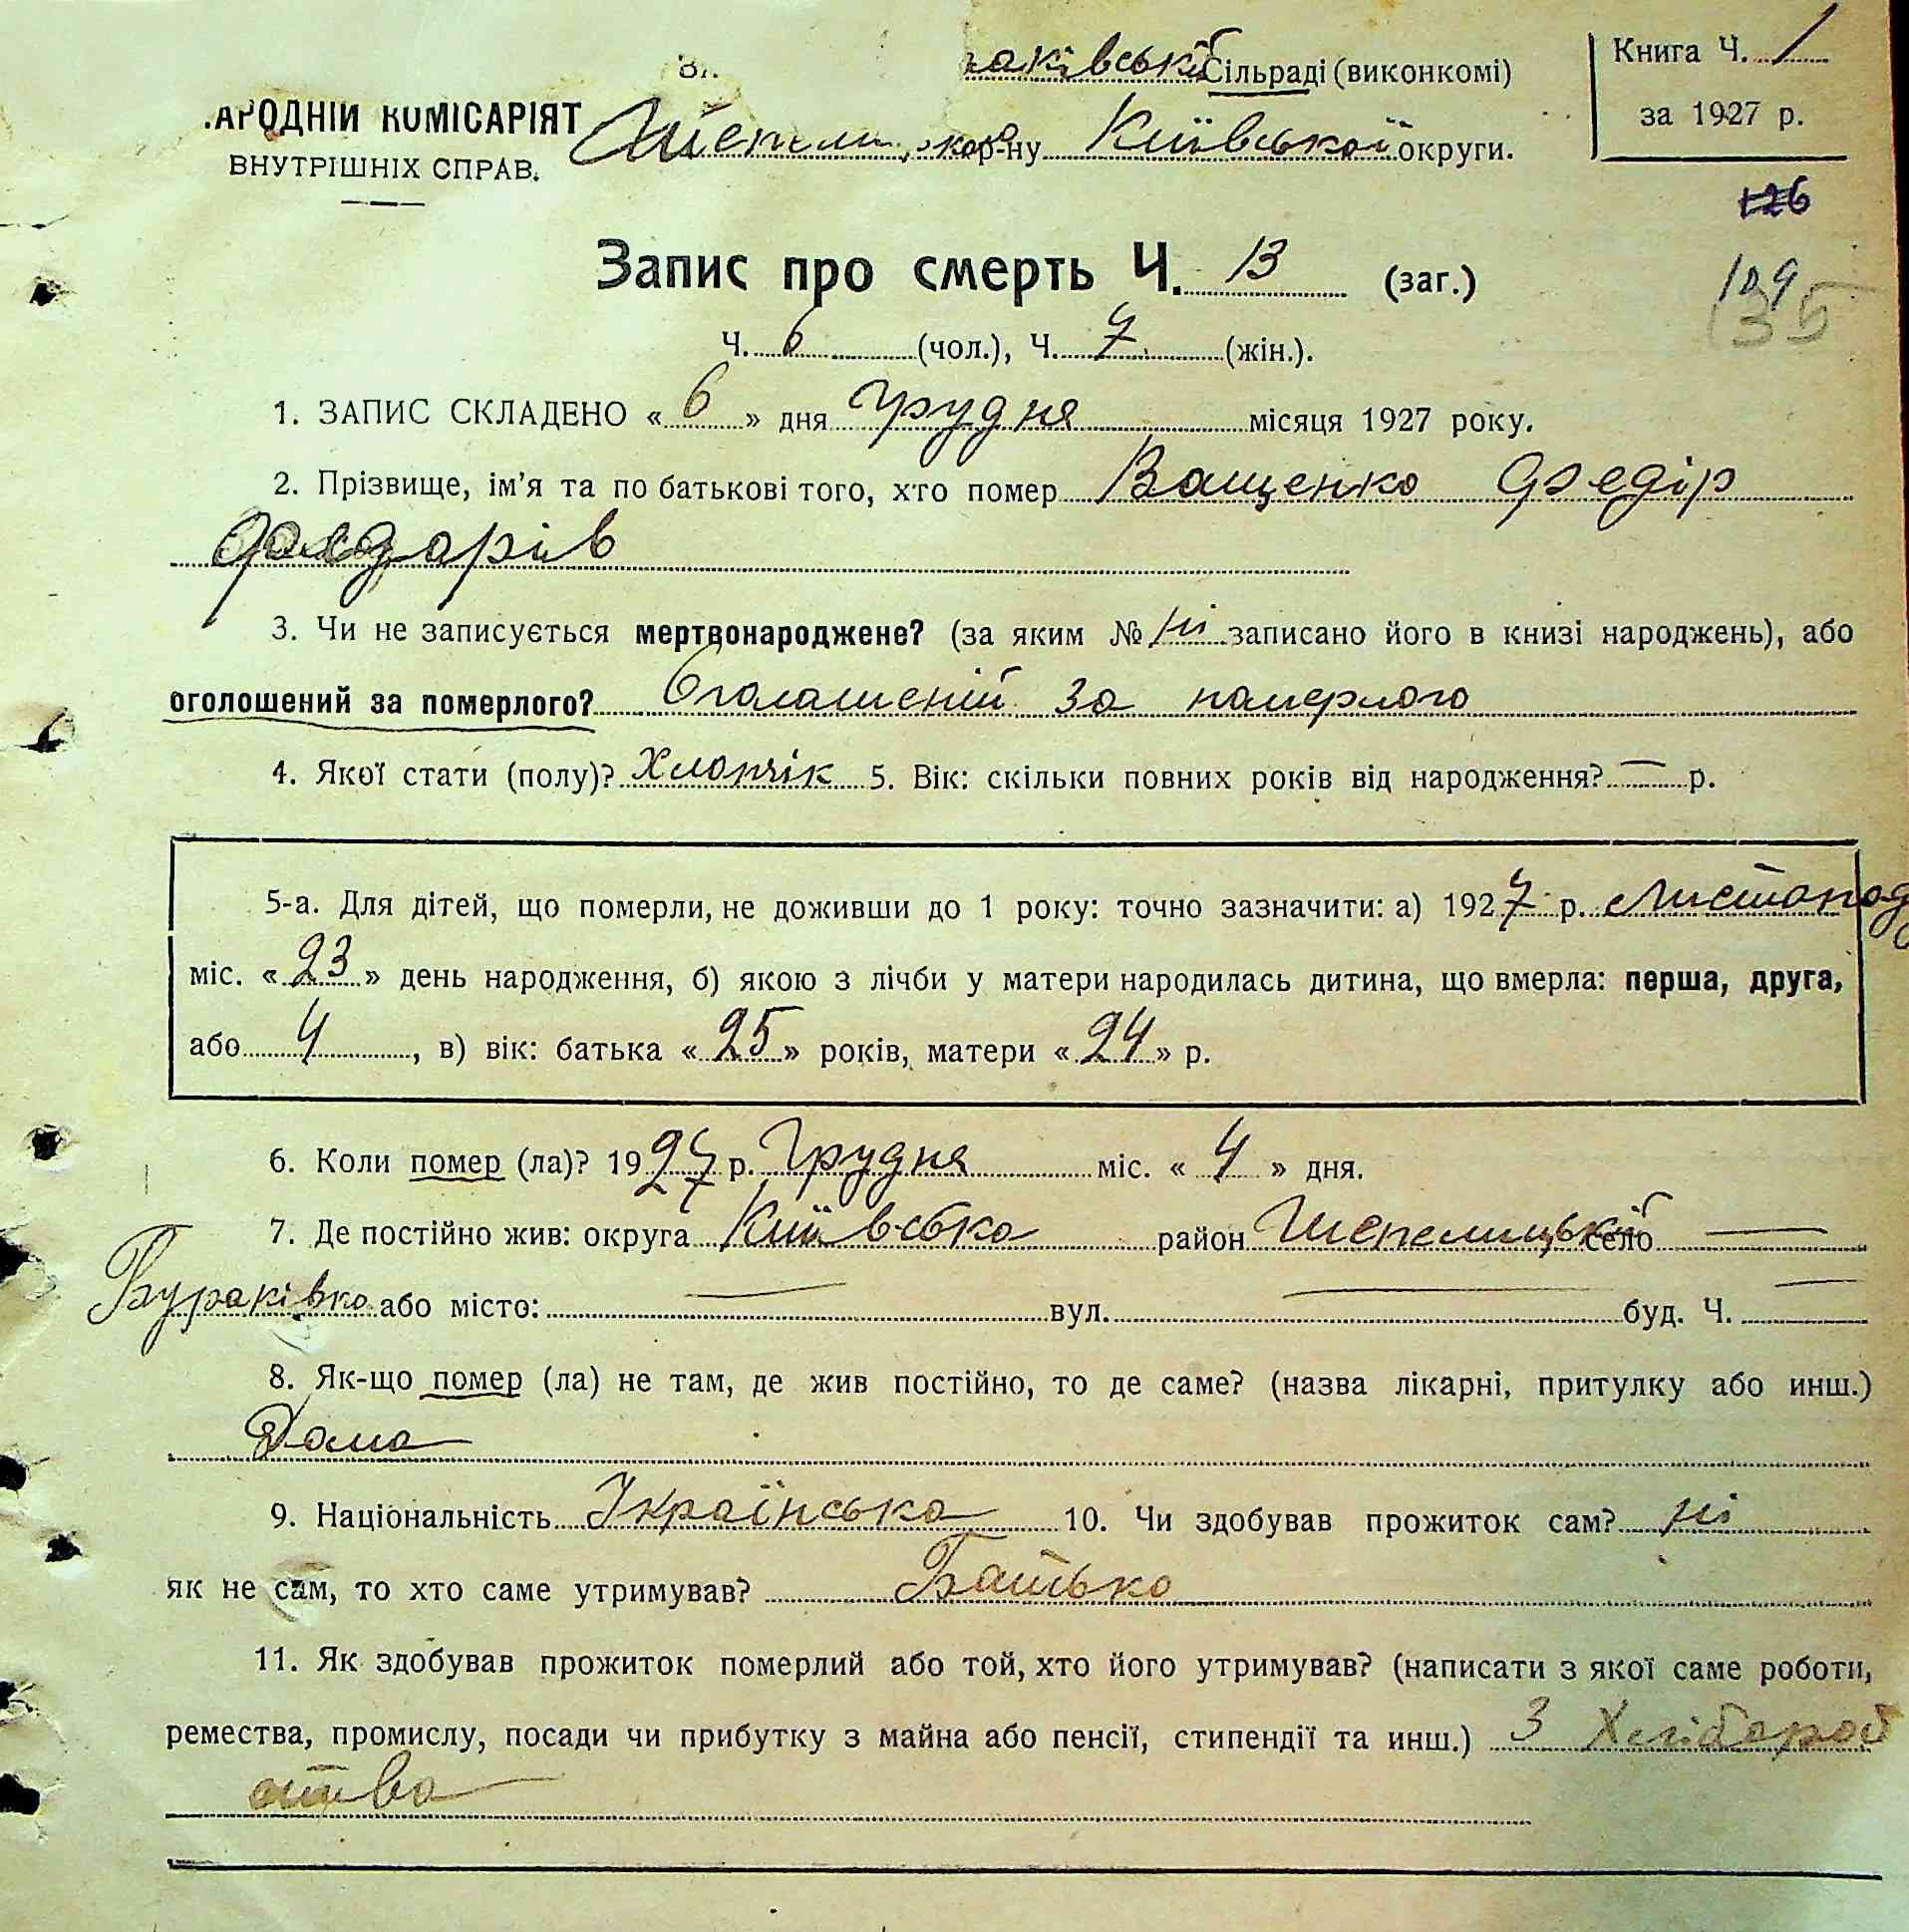 аківській Сільраді (виконкомі)
Книга Ч. 1
АРОДНІЙ КОМІСАРІЯТ
ВНУТРІШНІХ СПРАВ.
Шепели р-ну Київської округи.
за 1927 р.
126
Запис про смерть Ч. 13 (заг.)
109
35
Ч. 6 (чол.), Ч. 7 (жін.).
1. ЗАПИС СКЛАДЕНО « 6 » дня Грудня місяця 1927 року.
2. Прізвище, ім'я та по батькові того, хто помер Ващенко Федір
Федорів
3. Чи не записується мертвонароджене? (за яким № ні записано його в книзі народжень), або
оголошений за померлого? Оголашений за памерлого
4. Якої стати (полу)? Хлопчік 5. Вік: скільки повних років від народження? — р.
5-а. Для дітей, що померли, не доживши до 1 року: точно зазначити: а) 1927 р. Листопад
міс. « 23 » день народження, б) якою з лічби у матери народилась дитина, що вмерла: перша, друга,
або 4, в) вік: батька « 25 » років, матери « 24 » р.
6. Коли помер (ла)? 1927 р. Грудня міс. « 4 » дня.
7. Де постійно жив: округа Київська район Шепелицький село —
Бураківка або місто: — вул. — буд. Ч. —
8. Як-що помер (ла) не там, де жив постійно, то де саме? (назва лікарні, притулку або инш.)
Дома
9. Національність Українська 10. Чи здобував прожиток сам? ні
як не сам, то хто саме утримував? Батько
11. Як здобував прожиток померлий або той, хто його утримував? (написати з якої саме роботи,
ремества, промислу, посади чи прибутку з майна або пенсії, стипендії та инш.) З Хлібороб
ства